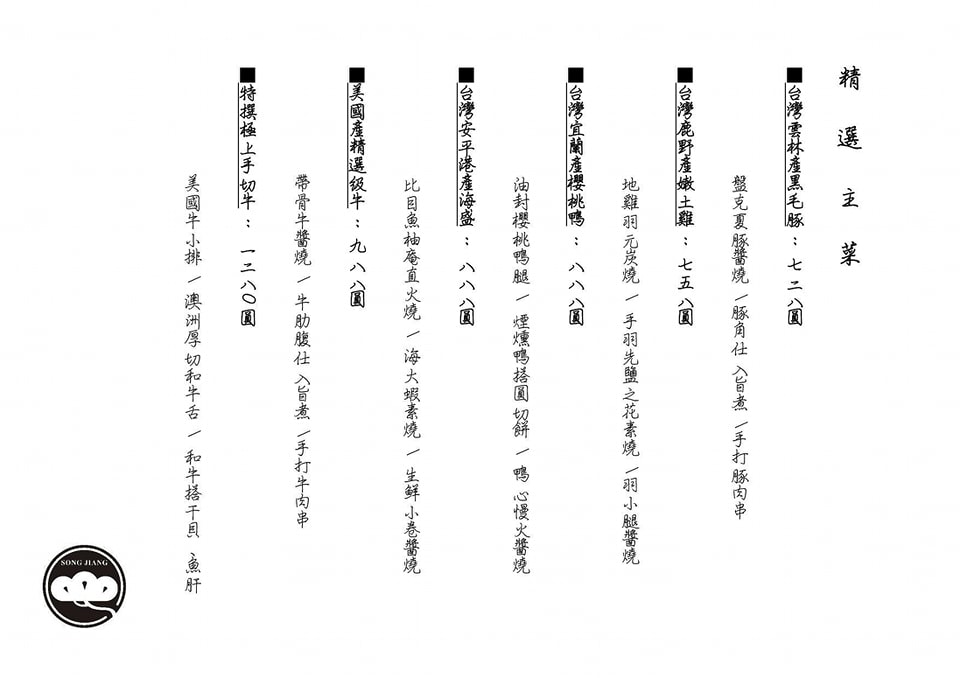 精選主菜
■台灣雲林產黑毛豚：七二八圓
盤克夏豚醬燒 / 豚角仕入旨煮 / 手打豚肉串
■台灣鹿野產嫩土雞：七五八圓
地雞羽元炭燒 / 手羽先鹽之花素燒 / 羽小腿醬燒
■台灣宜蘭產櫻桃鴨：八八八圓
油封櫻桃鴨腿 / 煙燻鴨搭圓切餅 / 鴨心慢火醬燒
■台灣安平港產海盛：八八八圓
比目魚柚庵直火燒 / 海大蝦素燒 / 生鮮小卷醬燒
■美國產精選級牛：九八八圓
帶骨牛醬燒 / 牛肋腹仕入旨煮 / 手打牛肉串
■特撰極上手切牛：一二八〇圓
美國牛小排 / 澳洲厚切和牛舌 / 和牛搭干貝、魚肝
SONG JIANG